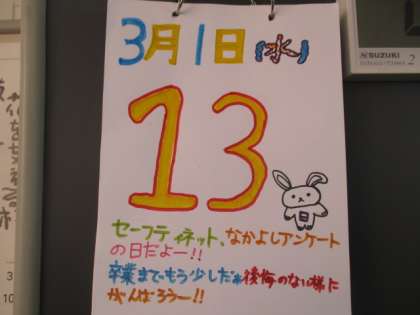 3月1日(水)
13
セーフティネット、なかよしアンケート
の日だよー!!
卒業まであもう少しだ*後悔のない様に
がんばろうー!!
SUZUKI
2
3
10